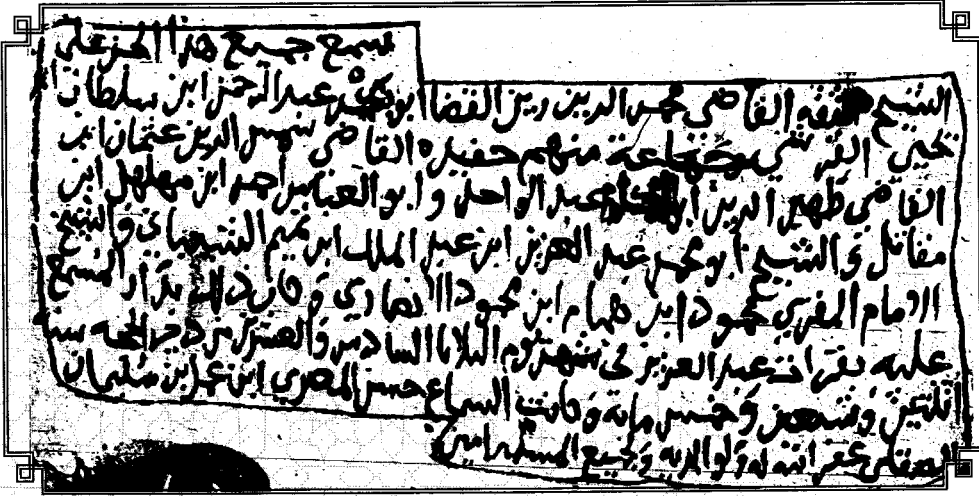 سمع جميع هذا الجز على
الشيخ الفقه القاضي محمد الدين زين القضا ابو بكر محمد عبد الرحمن ابن سلطان
يحيى القرشي جماعة منهم حفيده القاضي شمس الدين عثمان ابن
القاضي ظهير الدين عبد الواحد و ابو العباس احمد ابن مهلهل ابن
مقاتل و الشيخ ابو محمد عبد العزيز ابن عبد الملك ابن تميم الشيباني و الشيخ
الامام المقري محمود ابن همام ابن محمود الانصاري و كان ذلك بدار المسمع
عليه بقراة عبد العزيز في يوم الثلاثا السادس و العشرين من ذي الحجه سنه
ثلاث و تسعين و خمس مايه و كاتب السماع حسن ابن سليمان
الصقلي غفر الله له و لوالديه و جميع المسلمين امين